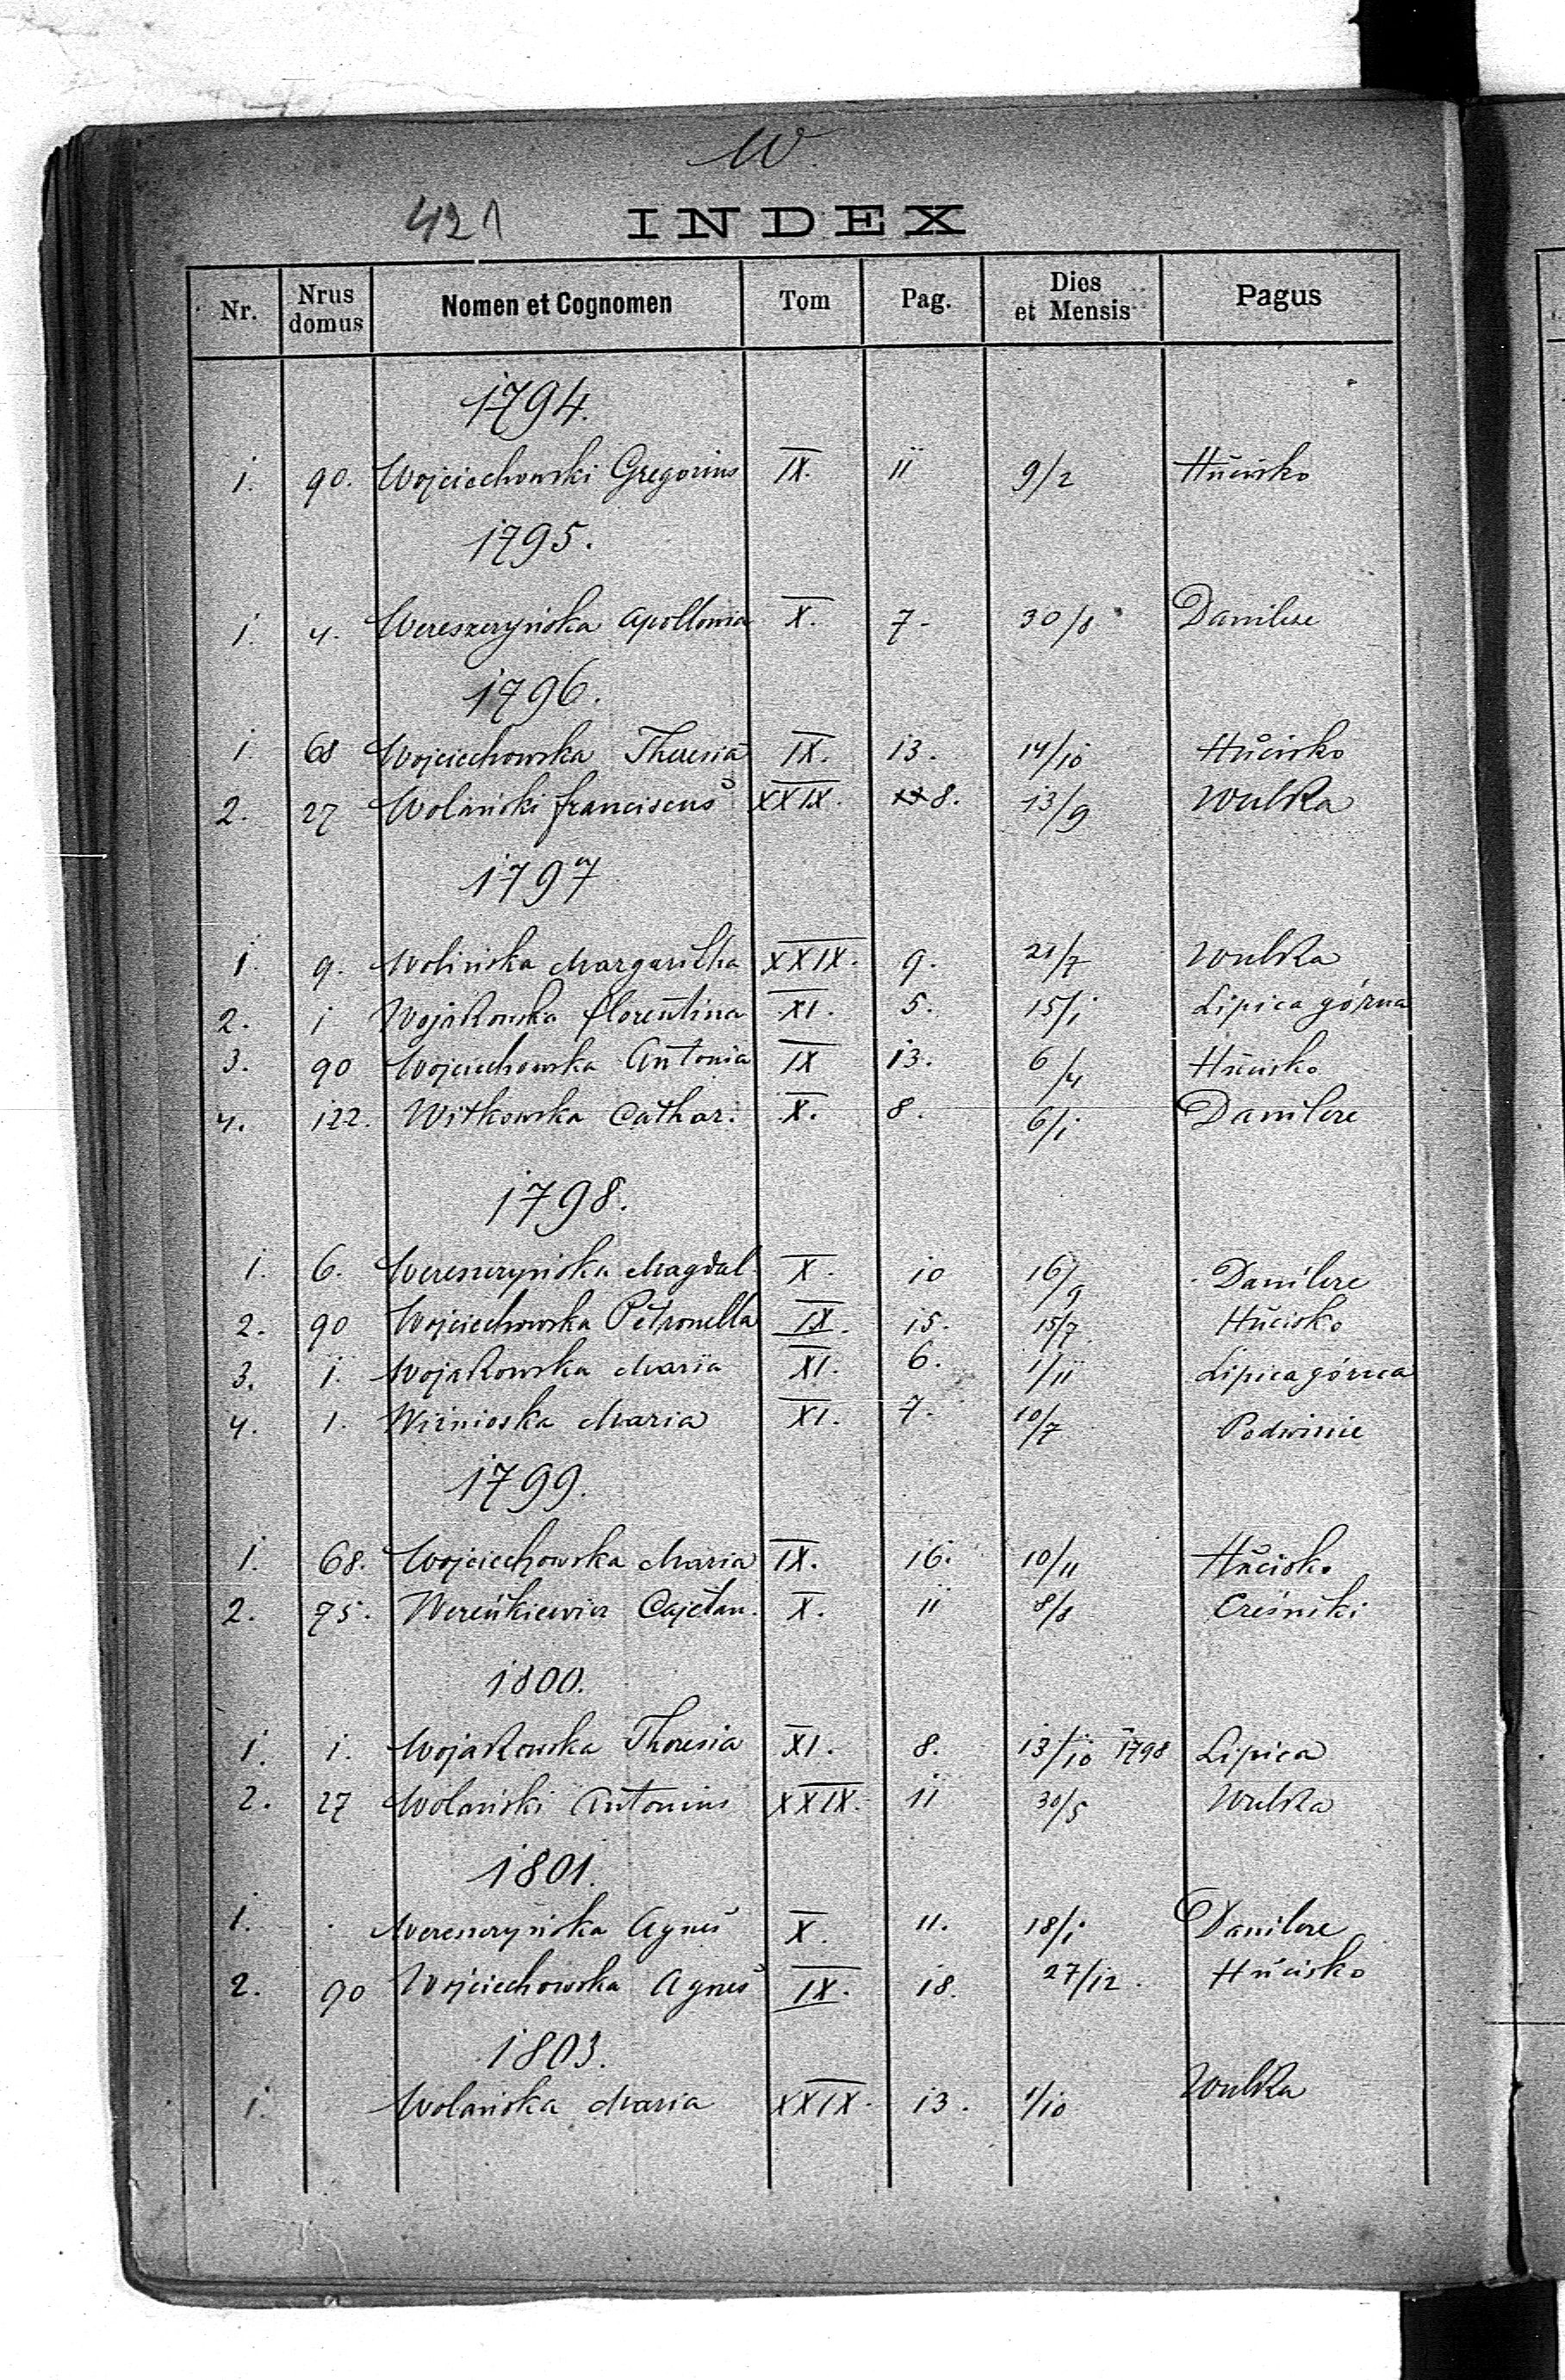 W.
421
INDEX
Nr. Nrus domus Nomen et Cognomen Tom Pag. Dies et Mensis Pagus
1794.
1. 90. Wojciechowski Gregorius IX. 11 9/2 Hucisko
1795.
1. 4. Wereszczyńska Apollonia X. 7- 30/8 Danilcze
1796.
1. 68 Wojciechowska Theresia IX. 13. 14/10 Hucisko
2. 27 Wolański Franciscus XXIX. 8. 13/9 Wulka
1797
1. 9. Wolińska Margaritha XXIX. 9. 21/7 Wulka
2. 1 Wojakowska Florentina XI. 5. 15/1 Lipica górna
3. 90 Wojciechowska Antonia IX 13. 6/4 Hucisko
4. 122. Witkowska Cathar. X. 8. 6/1 Danilcze
1798.
1. 6. Wereszczyńska Magdal. X. 10 16/9 Danilcze
2. 90 Wojciechowska Petronella IX. 15. 15/7. Hucisko
3. 1. Wojakowska Maria XI. 6. 1/11 Lipica górna
4. 1. Wiśnioska Maria XI. 7. 10/7 Podwinie
1799.
1. 68. Wojciechowska Maria IX. 16. 10/11 Hucisko
2. 75. Wereńkiewicz Cajetan. X. 11 8/8 Cześniki
1800.
1. 1. Wojakowska Theresia XI. 8. 13/10 1798 Lipica
2. 27 Wolański Antonius XXIX. 11 30/5 Wulka
1801.
1. . Wereszczyńska Agnes X. 11. 18/1 Danilcze
2. 90 Wojciechowska Agnes IX. 18. 27/12. Hucisko
1803.
1. Wolańska Maria XXIX. 13. 1/10 Wulka